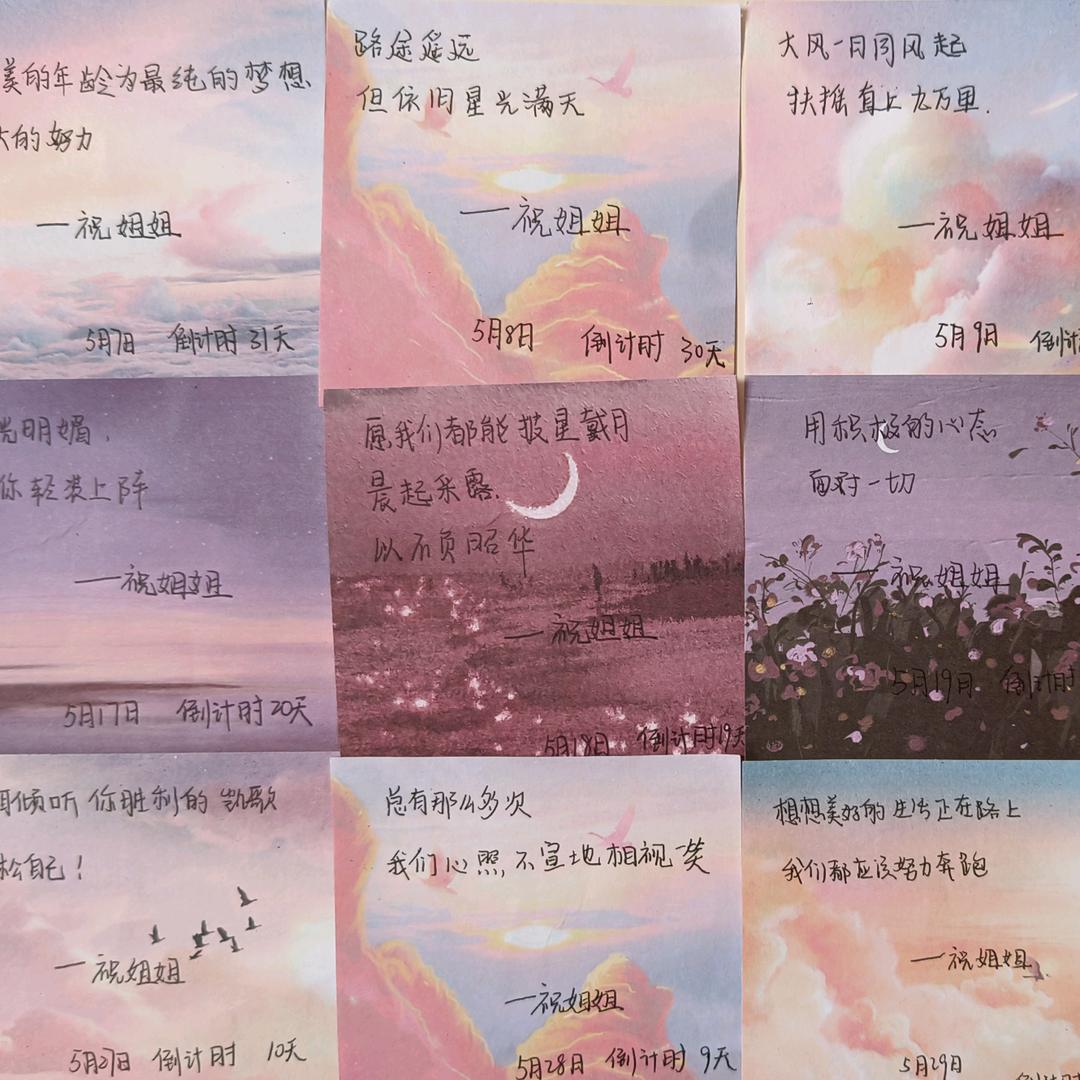 美的年龄为最纯的梦想
大的努力
—祝姐姐
5月7日 倒计时31天
路途遥远
但依旧星光满天
—祝姐姐
5月8日 倒计时 30天
大风一日同风起
扶摇直上九万里.
—祝姐姐
5月9日 倒计
光明媚,
你轻装上阵
—祝姐姐
5月17日 倒计时20天
愿我们都能披星戴月
晨起采露.
以不负昭华
—祝姐姐
5月18日 倒计时19天
用积极的心态
面对一切
—祝姐姐
5月19日 倒计时
耳倾听你胜利的凯歌
松自己!
—祝姐姐
5月27日 倒计时 10天
总有那么多次
我们心照不宣地相视一笑
—祝姐姐
5月28日 倒计时 9天
想想美好的生活正在路上
我们都应该努力奔跑
—祝姐姐
5月29日